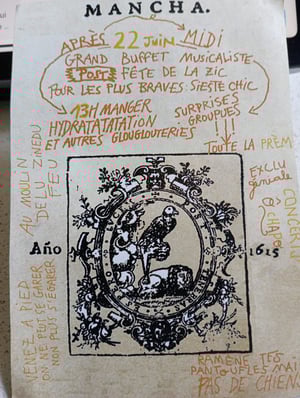 MANCHA.
APRÈS 22 JUIN MIDI
GRAND BUFFET MUSICALISTE
(POST) FÊTE DE LA ZIC
POUR LES PLUS BRAVES: SIESTE CHIC
13H MANGER
HYDRATATATATION
ET AUTRES GLOUGLOUTERIES
SURPRISES
GROUPUES
!!!
TOUTE LA PRÈM
EXCLU
géniale
CONCERTS
CHAPE
AU MOULIN
DE LU ZINEDU
FEU
Año
1615
VENEZ À PIED
ON NE PEUT SE GARER
NON PLUS S'ÉGARER
RAMÈNE TES
PANTOUFLES MAI
PAS DE CHIEN